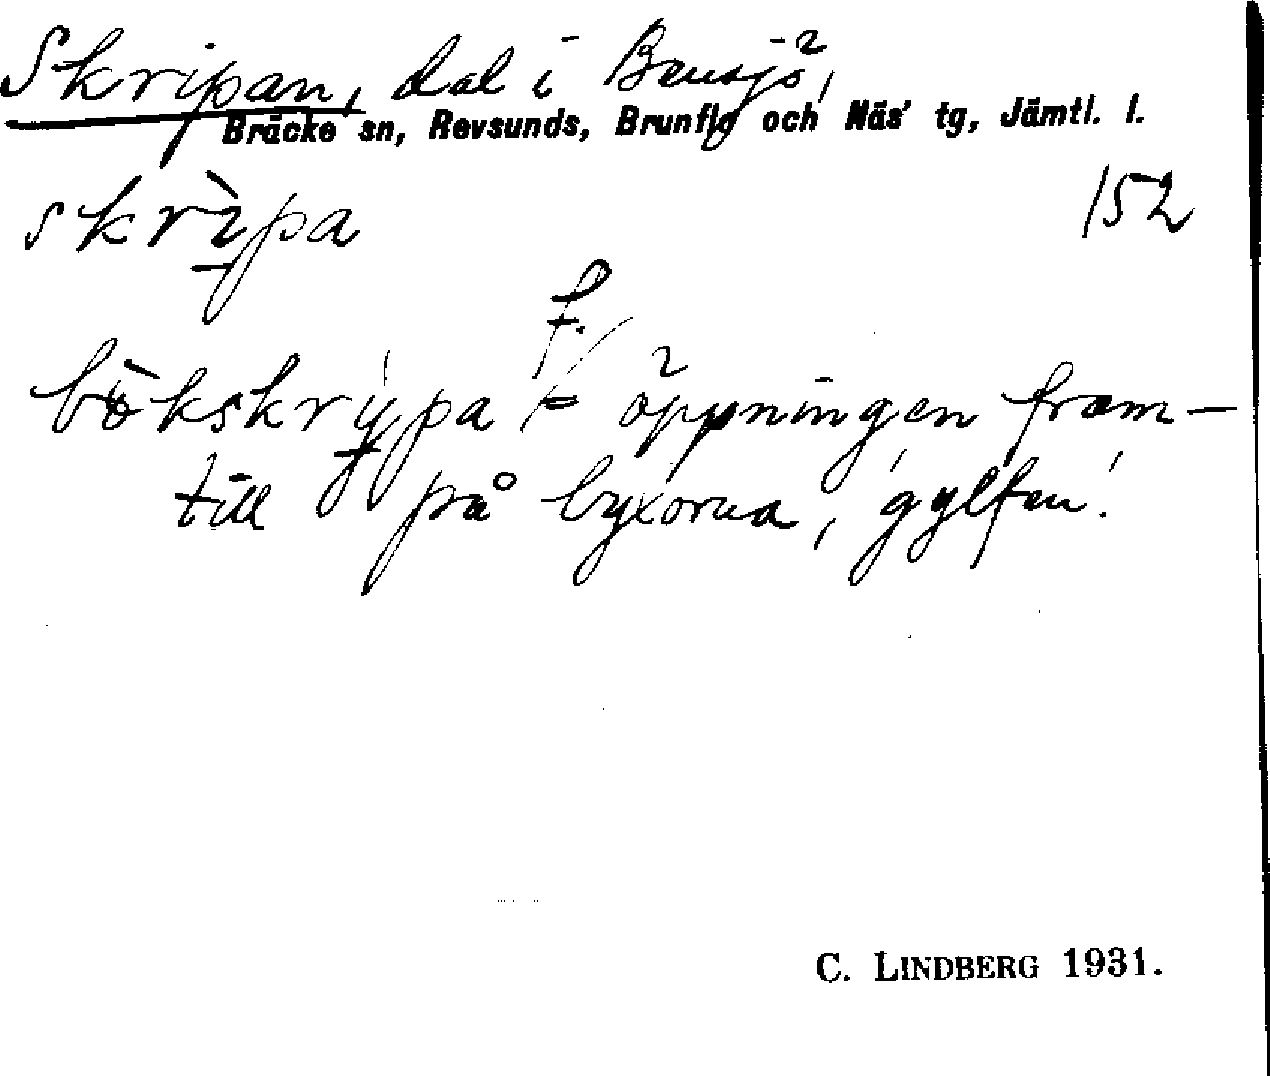 Skripan, dal i Bensjö,
Bräcke sn, Revsunds, Brunflo och Näs' tg, Jämtl. l.
skrìpa 152
f.
bòkskrypa = öppningen fram-
till på byxorna, 'gylfen'.
C. LINDBERG 1931.